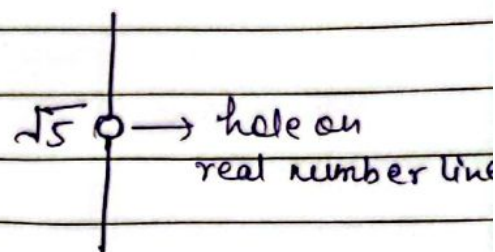 √5 → hole on
real number line